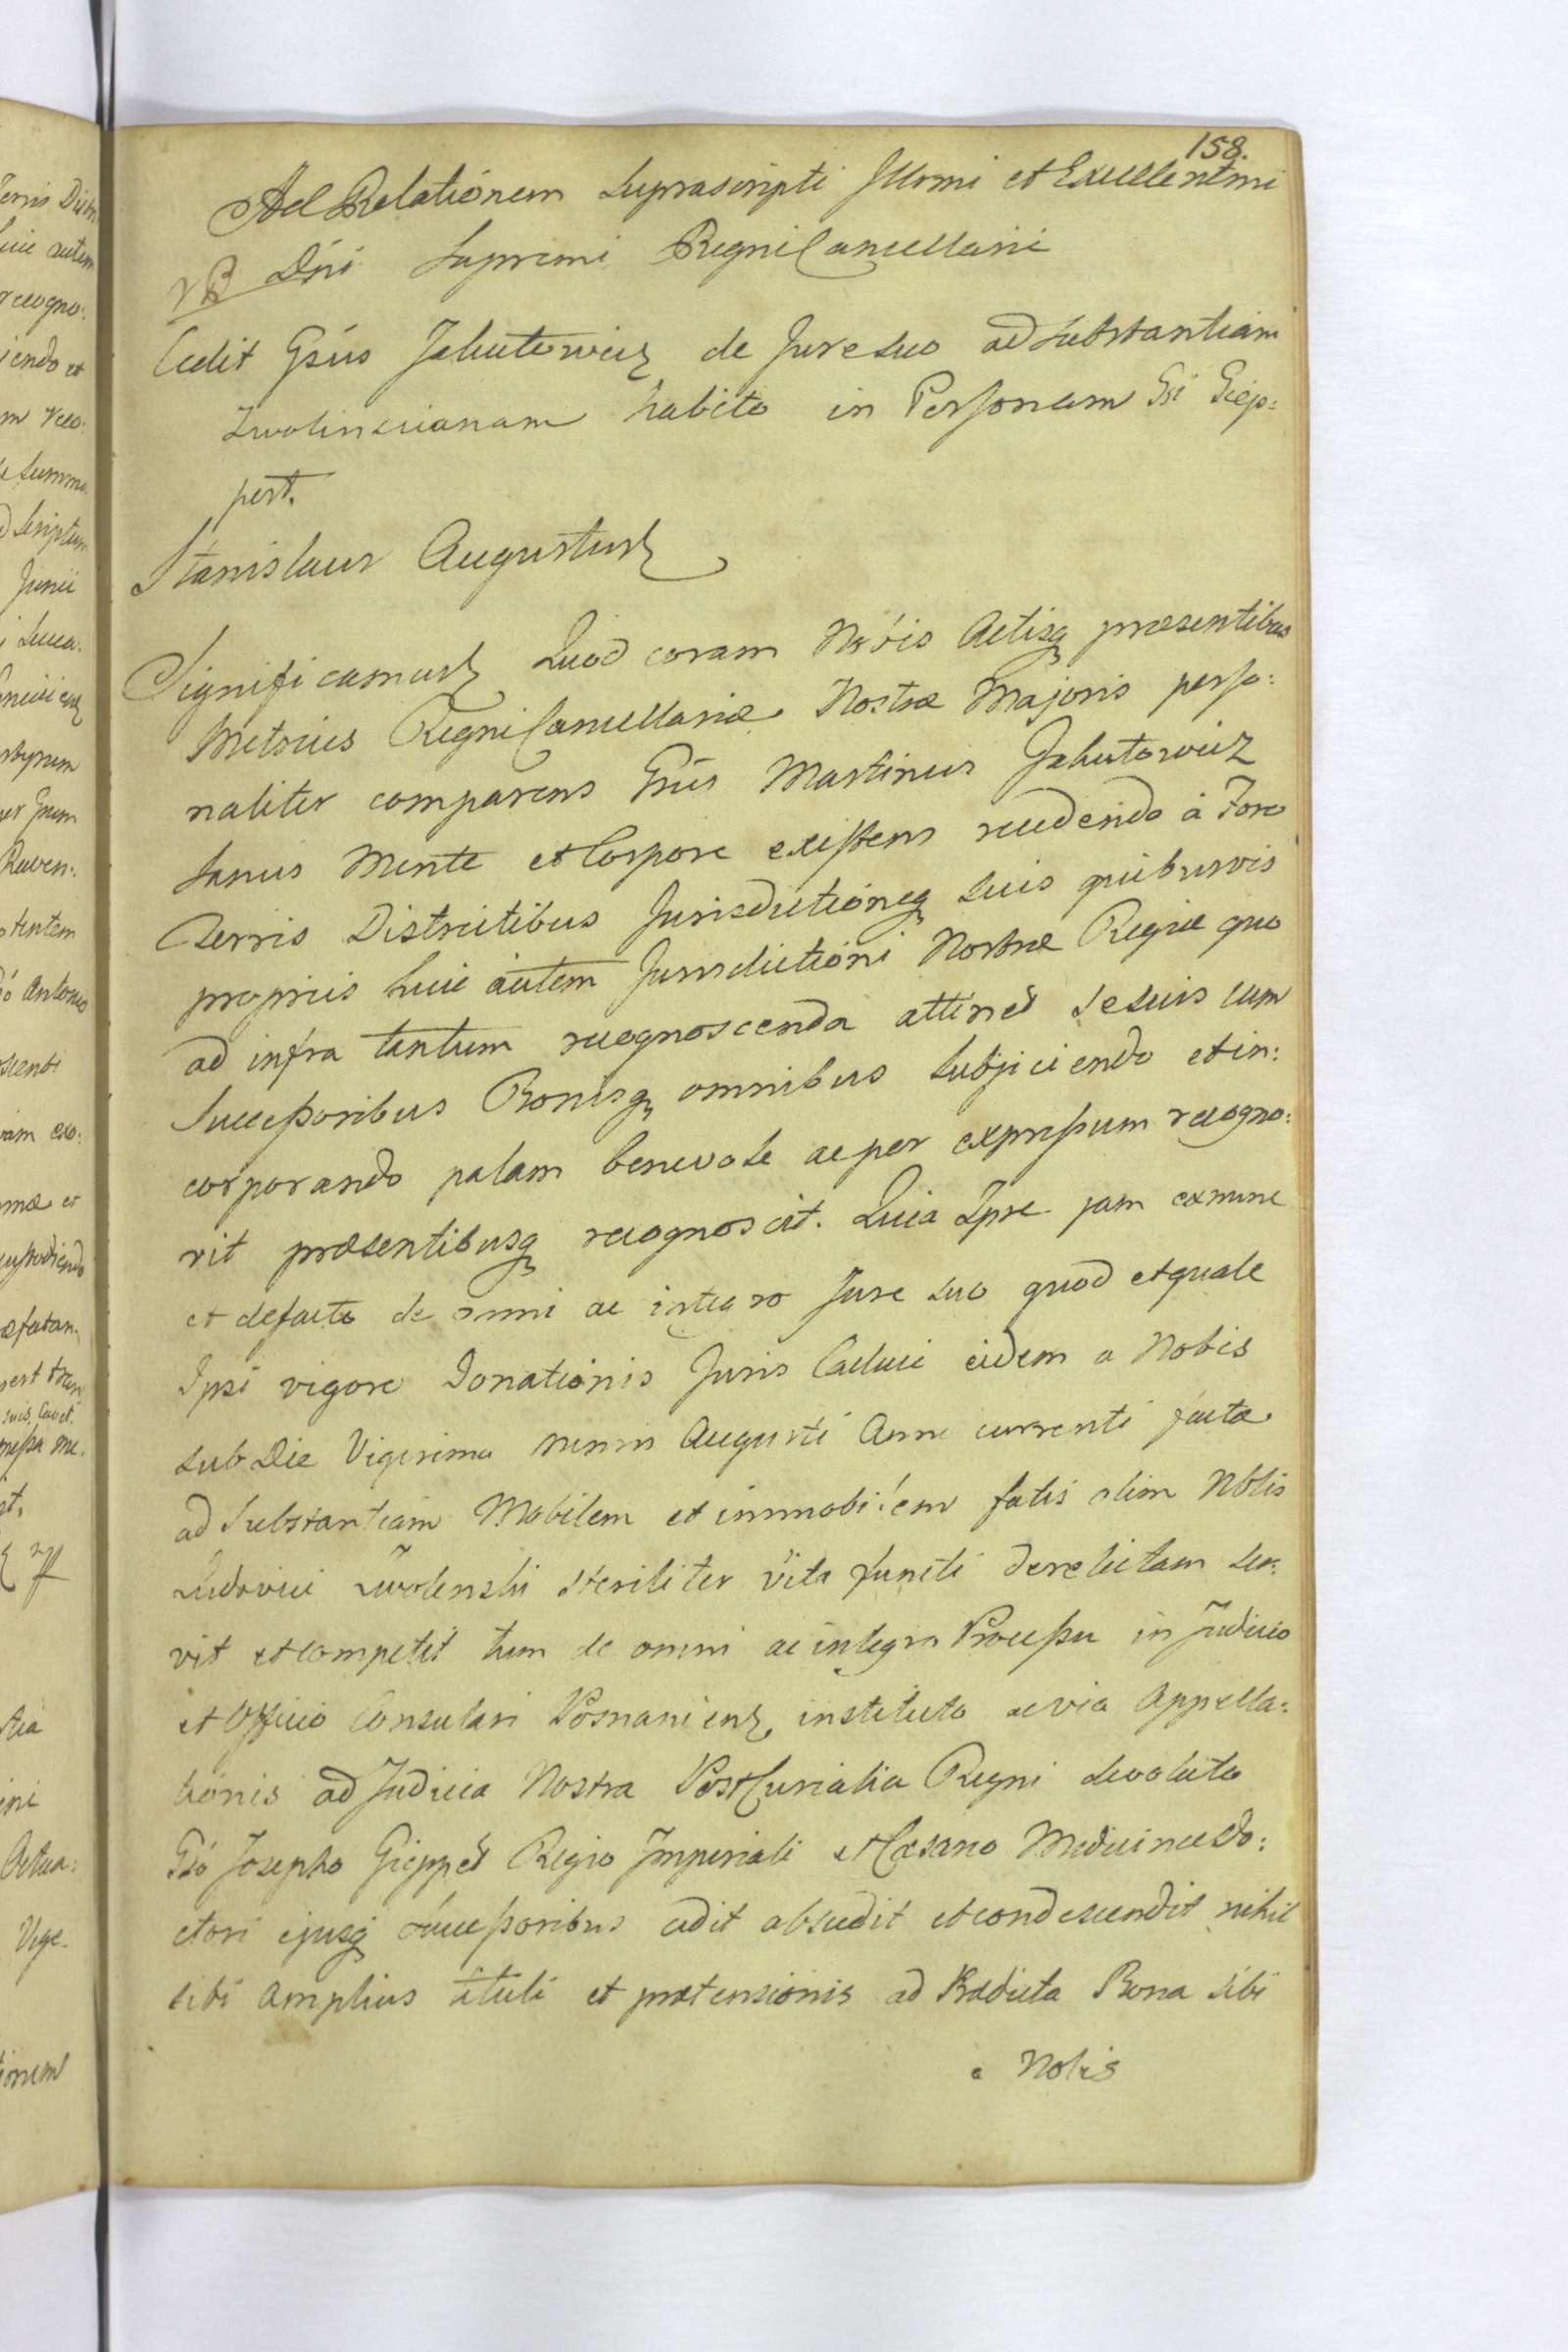 158.
Ad Relationem Suprascripti Illmi et Excellentmi
Dni Supremi Regni Cancellarii
Cedit Gsus Jakutowicz de Jure suo ad substantiam
Zwolinscianam habito in Personam Gsi Giep:
pert.
Stanislaus Augustus
Significamus Quod coram Nobis Actisq praesentibus
Metrices Regni Cancellariae Nostrae Majoris perso:
naliter comparens Gsus Martinus Jakutowicz
Sanus Mente et Corpore existens recedendo à Foro
Terris Districtibus Jurisdictioneq suis quibusvis
propriis huic autem Jurisdictioni Nostrae Regiae quo
ad infra tantum recognoscenda attinet se suis cum
Successoribus Bonisq omnibus subjiciendo et in:
corporando palam benevole ac per expressum recogno:
vit praesentibusq recognoscit. Quia Ipse jam ex nunc
et de facto de omni ac integro Jure suo quod et quale
Ipsi vigore Donationis Juris Caduci eidem a Nobis
sub Die Vigesima mensis Augusti Anni currenti facta
ad Substantiam Mobilem et immobilem fatis olim Nblis
Ludovici Zwolenski steriliter vita functi derelictam ser:
vit et competit tum de omni ac integro Processu in Judicio
et Officio Consulari Posnaniens, instituto ac via Appella:
tionis ad Judicia Nostra Post Curialia Regni devoluto
Gso Josepho Gieppert Regio Imperiali et Caesareo Medicinae Do:
ctori ejusq Successoribus cedit abscedit et condescendit nihil
sibi amplius tituli et praetensionis ad Praedicta Bona sibi
a Nobis